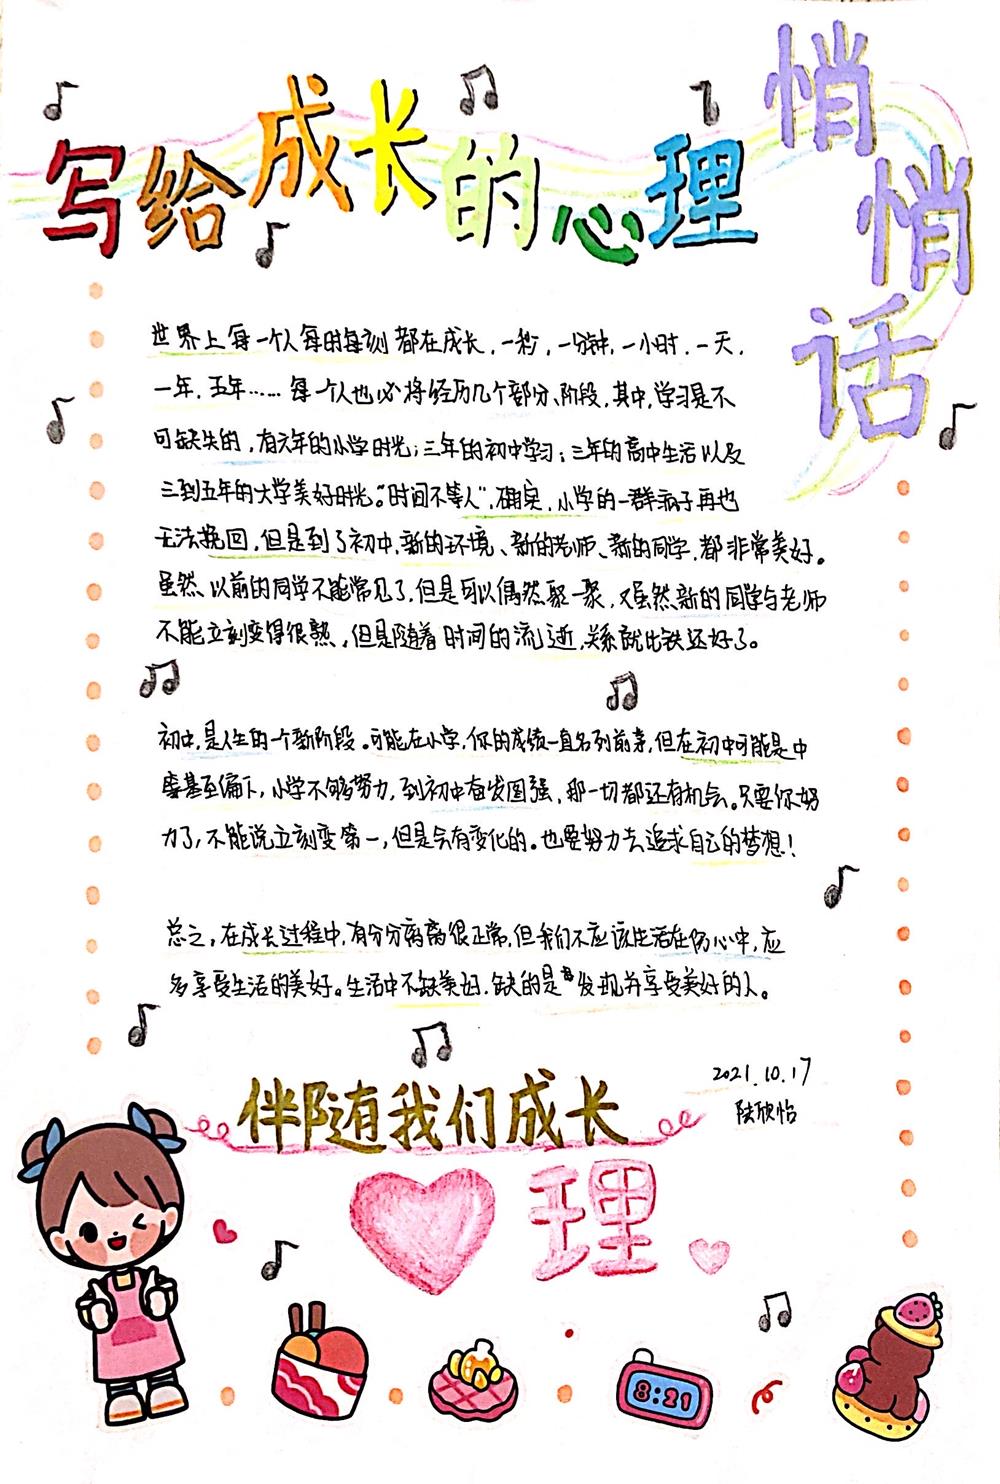 写给成长的心理
悄悄话
世界上每一个人每时每刻都在成长，一秒，一分钟，一小时，一天，
一年，五年……每一个人也必将经历几个部分、阶段，其中，学习是不
可缺失的，有六年的小学时光；三年的初中学习；三年的高中生活以及
三到五年的大学美好时光。“时间不等人”，确实，小学的一群疯子再也
无法挽回，但是到了初中，新的环境、新的老师、新的同学，都非常美好。
虽然，以前的同学不能常见了，但是可以偶然聚一聚，又虽然新的同学与老师
不能立刻变得很熟，但是随着时间的流逝，关系就比铁还好了。
初中，是人生的一个新阶段。可能在小学，你的成绩一直名列前茅，但在初中可能是中
等甚至偏下，小学不够努力，到初中奋发图强，那一切都还有机会。只要你努
力了，不能说立刻变第一，但是会有变化的。也要努力去追求自己的梦想！
总之，在成长过程中，有分分离离很正常，但我们不应该生活在伤心中，应
多享受生活的美好。生活中不缺美好，缺的是发现并享受美好的人。
2021.10.17
陆欣怡
伴随我们成长
理
8:21